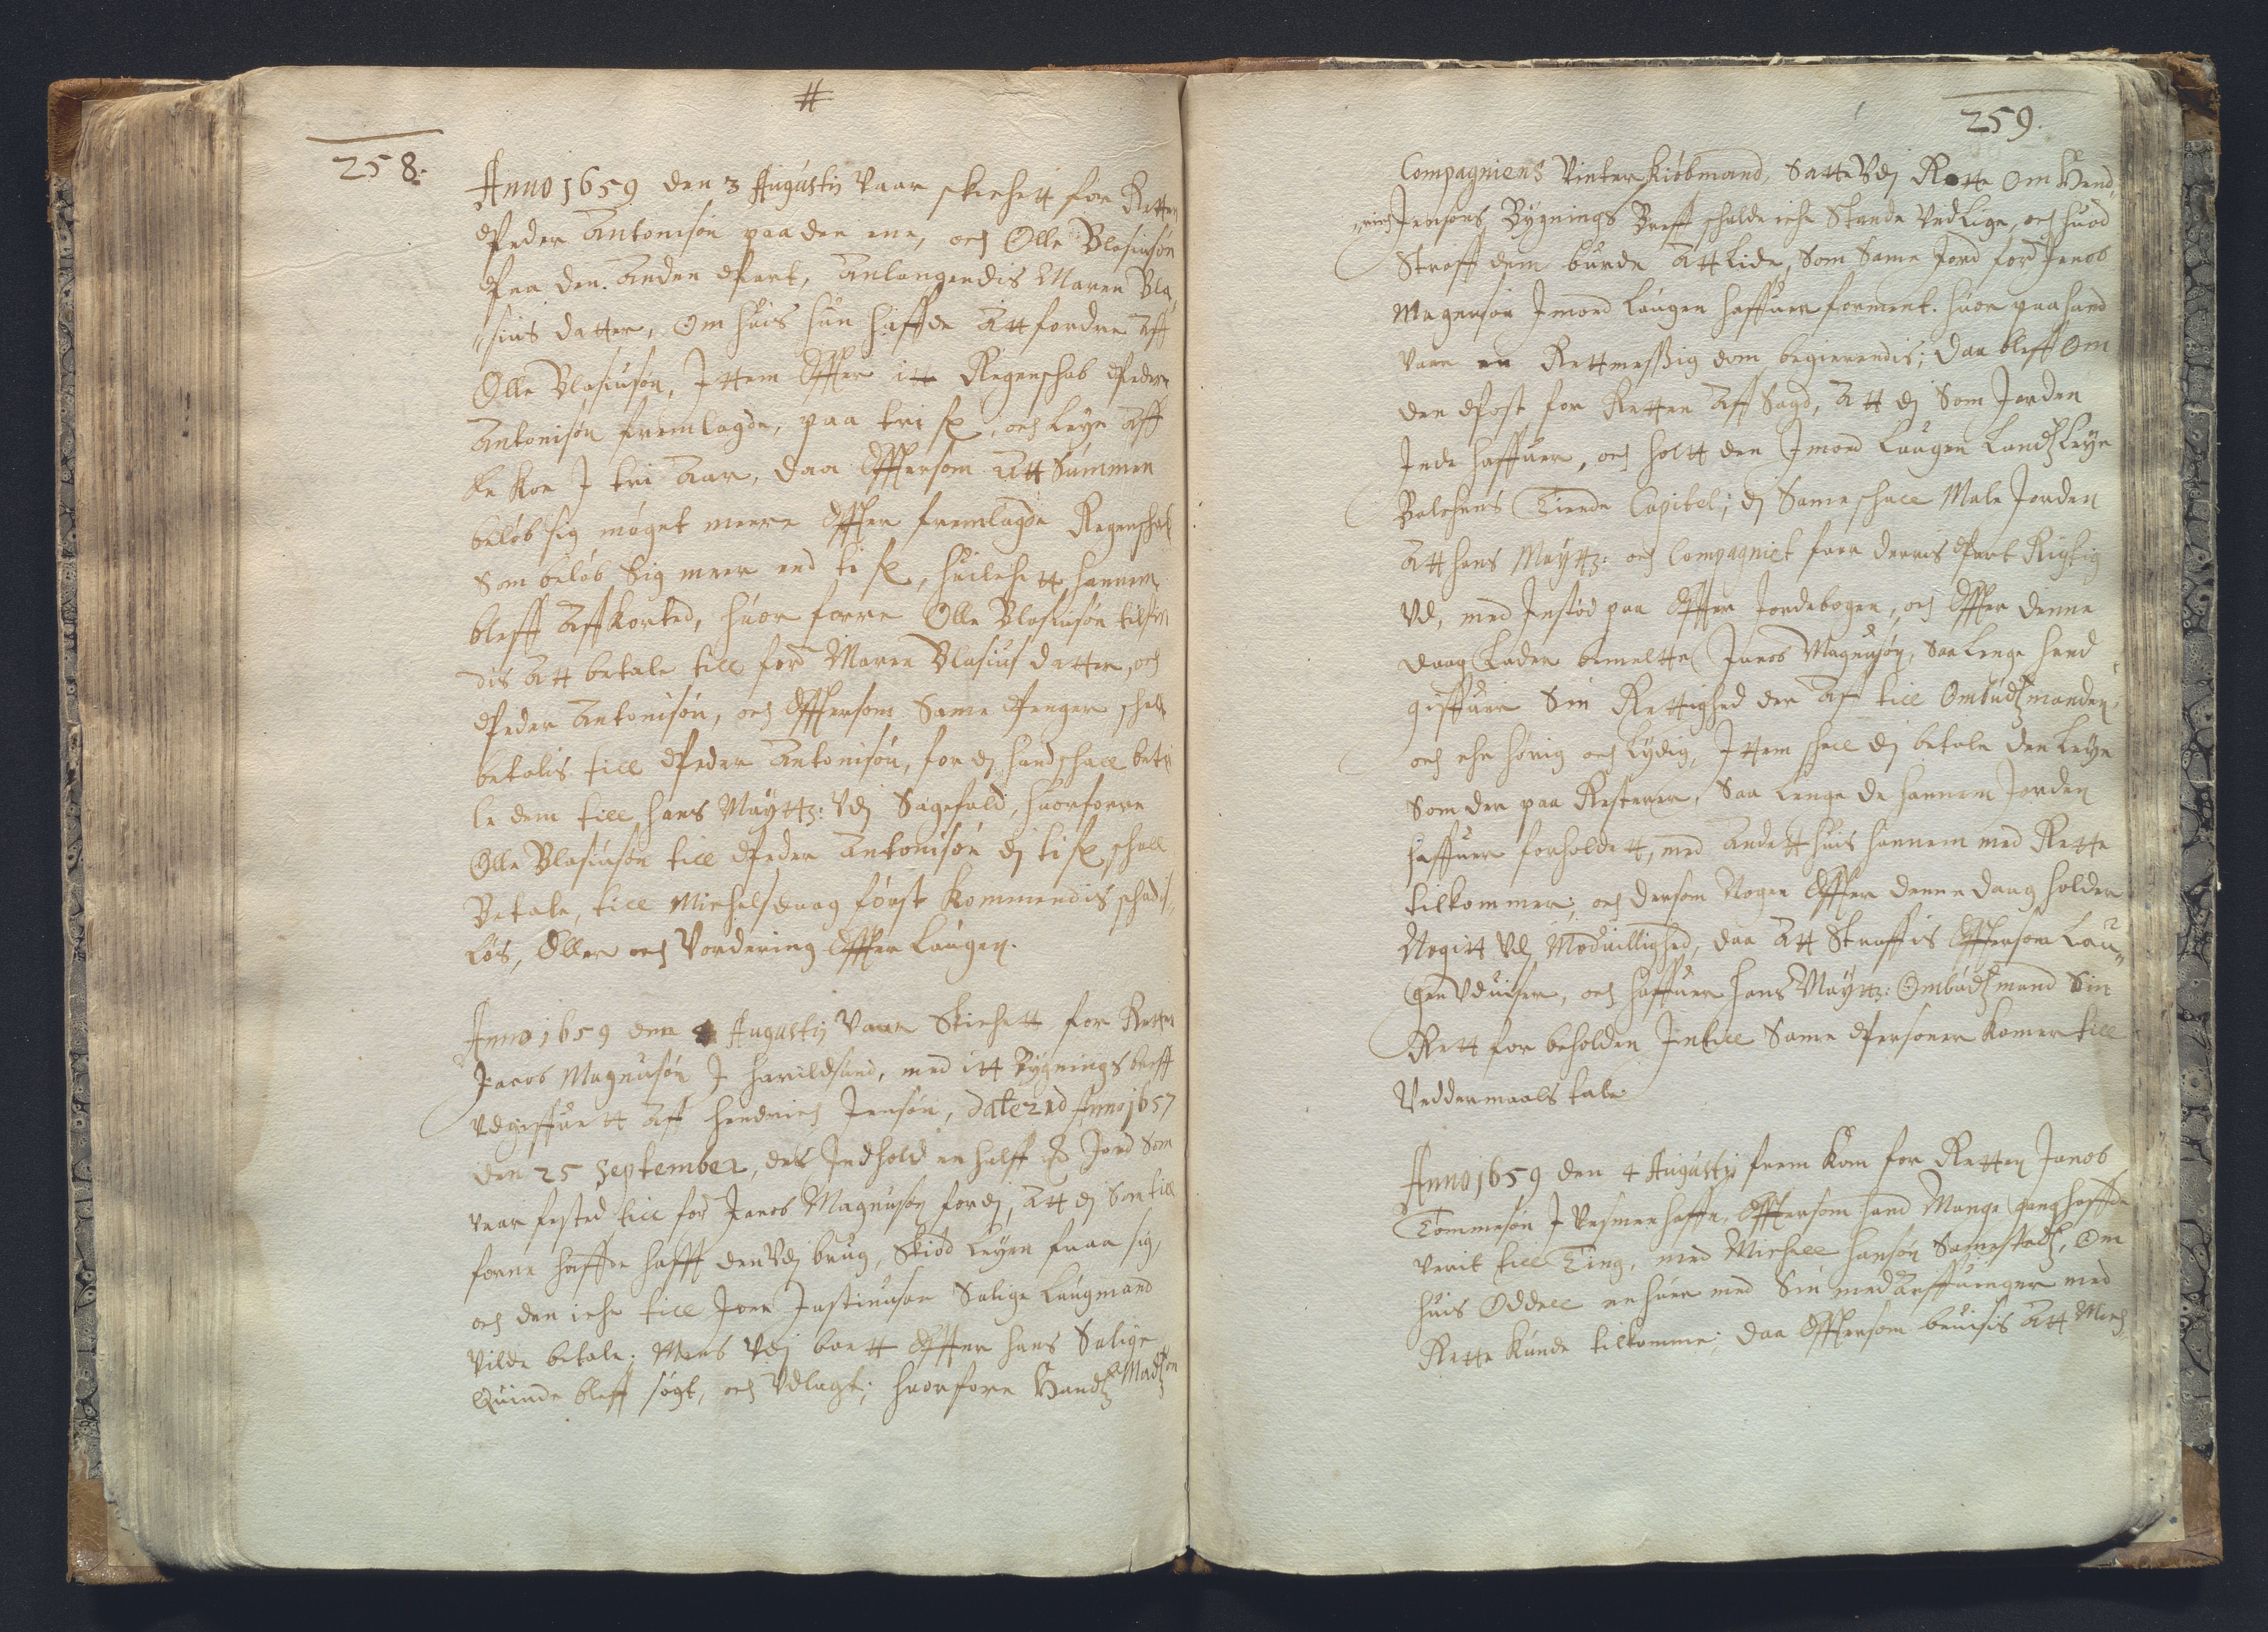 #
258.
Anno 1659 den 3 Augustij Vaar skickett for Retten
Peder Antonisøn paa den ene, och Olle Blasiusøn
Paa den Anden Part, Anlangendis Maren Bla„
„sius datter, Om huis hun haffde Att fordre Aff
Olle Blasiusøn, Ittem Effter itt Regenschab Peder
Antonisøn fremlagde, paa tri , och Leye Aff
en Koe I tri Aar, daa Effttersom Att Summen
beløb sig møget meere Effter fremlagde Regenschab
Som beløb Sig meer end ti , huilchett hannem
bleff Affkorted, huor forre Olle Blasiusøn tilfin
dis Att betale till for Maren Blasius datter, och
Peder Antonisøn, och Efftersom Same Penger schall
betalis till Peder Antonisøn, fordj hand schall beta
le dem till hans Mayttz: Vdj Sagefald, huorforre
Olle Blasiusøn till Peder Antonisøn dj ti schall
Betale, till Michelsdaag først Kommendis schades„
løs, Eller och Vordering Effter Laugen.
Anno 1659 den 4 Augustij Vaar Skickett for Retten
Jacob Magnusøn I harildsund, med itt Bygningsbreff
Vdgiffuett Aff Hendrich Jensøn, Daterid Anno 1657
den 25 September, des Indhold en halff Jord Som
vaar fested till for Jacob Magnusøn fordj, Att dj Som till
forne haffde hafft den Vdj brug, Skiød Leyen fraa sig,
och den iche till Joen Justinusøn Salige Laugmand
Vilde betale; Mens Vdj bort Effter hans Salige
Quinde bleff søgt, och Vdlagt; huorfore Handtz Madtzøn
259.
Compagniens Vinter Kiøbmand, Satte Vdj Rette Om Hend„
„rich Jensøns Bygnings Breff schulde iche Stande Ved Lige, och huad
Straff dem burde Att Lide, Som Same Jord for Jacob
Magnusøn Imod Laugen haffuer forment. huor paa hand
vare en Rettmessig dom begierendis; daa bleff Om
den Post for Retten Aff Sagd, Att dj Som Jorden
Inde haffuer, och holtt den Imod Laugen Landtz Leye
Balchens Tiende Capitel; dj Same schall Male Jorden
Att hans Mayttz: och Compagniet faar deris Part Rigtig
Vd, med Instød paa Effter Jordebogen, och Effter denne
daag Lader bemeltte Jacob Magnusøn, saa Lenge hand
giffuer Sin Rettighed der Aff till Ombudtzmanden,
och ehr hørig och Lydig, Ittem schall dj betale den Leye
Som der paa Resterer, Saa Lenge de hannem Jorden
haffuer forholdett, med Andett huis hannem med Rette
tilkommer; och dersom Nogen Effter denne daag holder
Nogitt Vd, Moduillighed, daa Att Straffis Efftersom Lau„
gen Vduiser, och haffuer hans Mayttz: Ombudtzmand Sin
Rett for beholden Intill Same Personer Komer till
Veddermaals tale.
Anno 1659 den 4 Augustij frem Kom for Retten Jacob
Tommesøn I Vesmenhaffn, Efftersom hand Mange gang haffde
verit till Ting, med Michell Hansøn Samestedtz, Om
huis Oddell en huer med Sin med arffuinger med
Rette Kunde tilkomme; daa Efftersom beuisis Att Mich